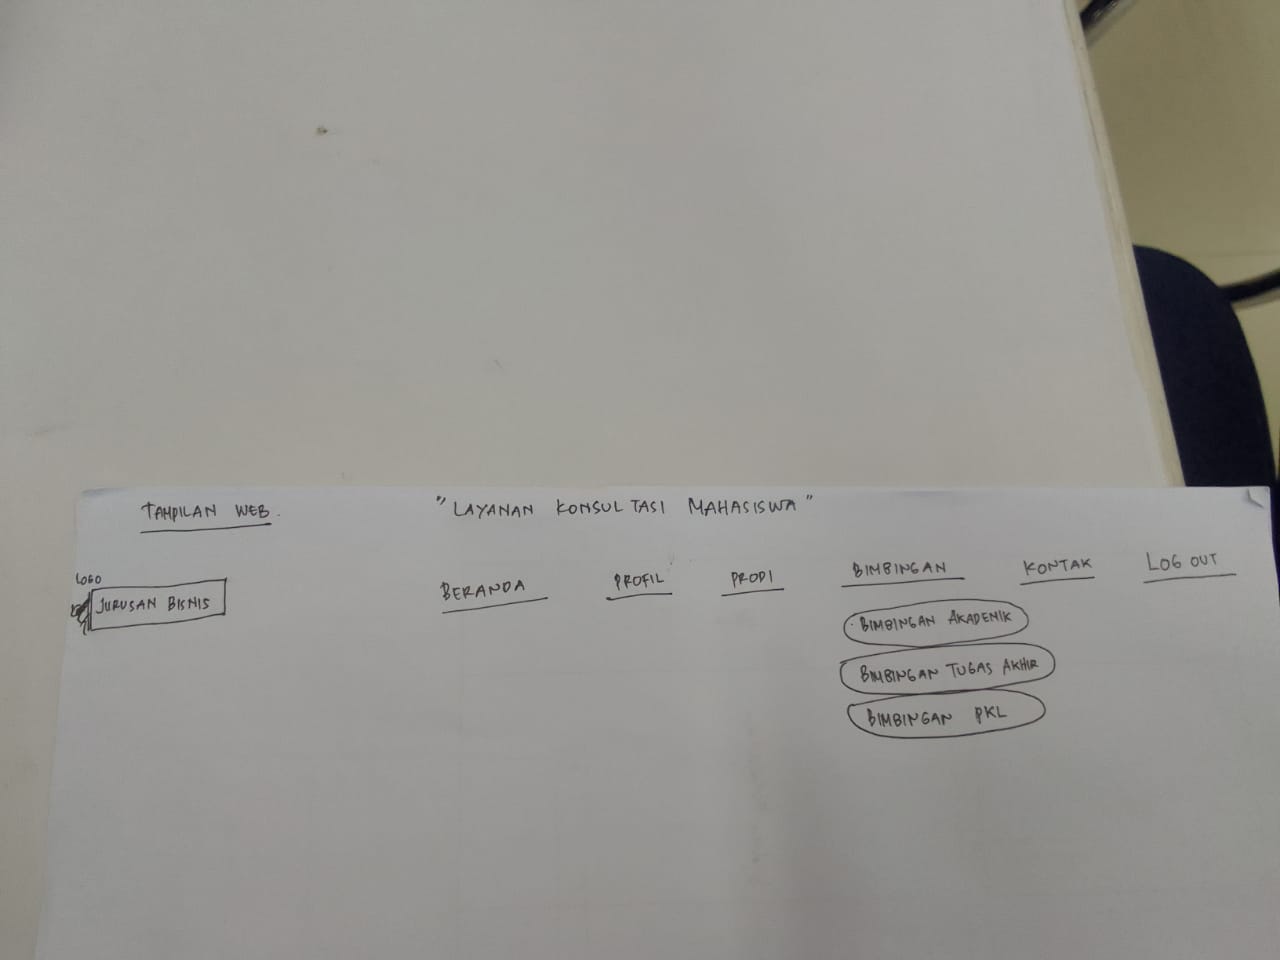 TAMPILAN WEB.
"LAYANAN KONSULTASI MAHASISWA"
LOGO
JURUSAN BISNIS
BERANDA PROFIL PRODI BIMBINGAN KONTAK LOG OUT
BIMBINGAN AKADEMIK
BIMBINGAN TUGAS AKHIR
BIMBINGAN PKL